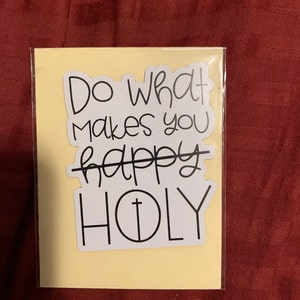 Do What
Makes You
happy
HOLY